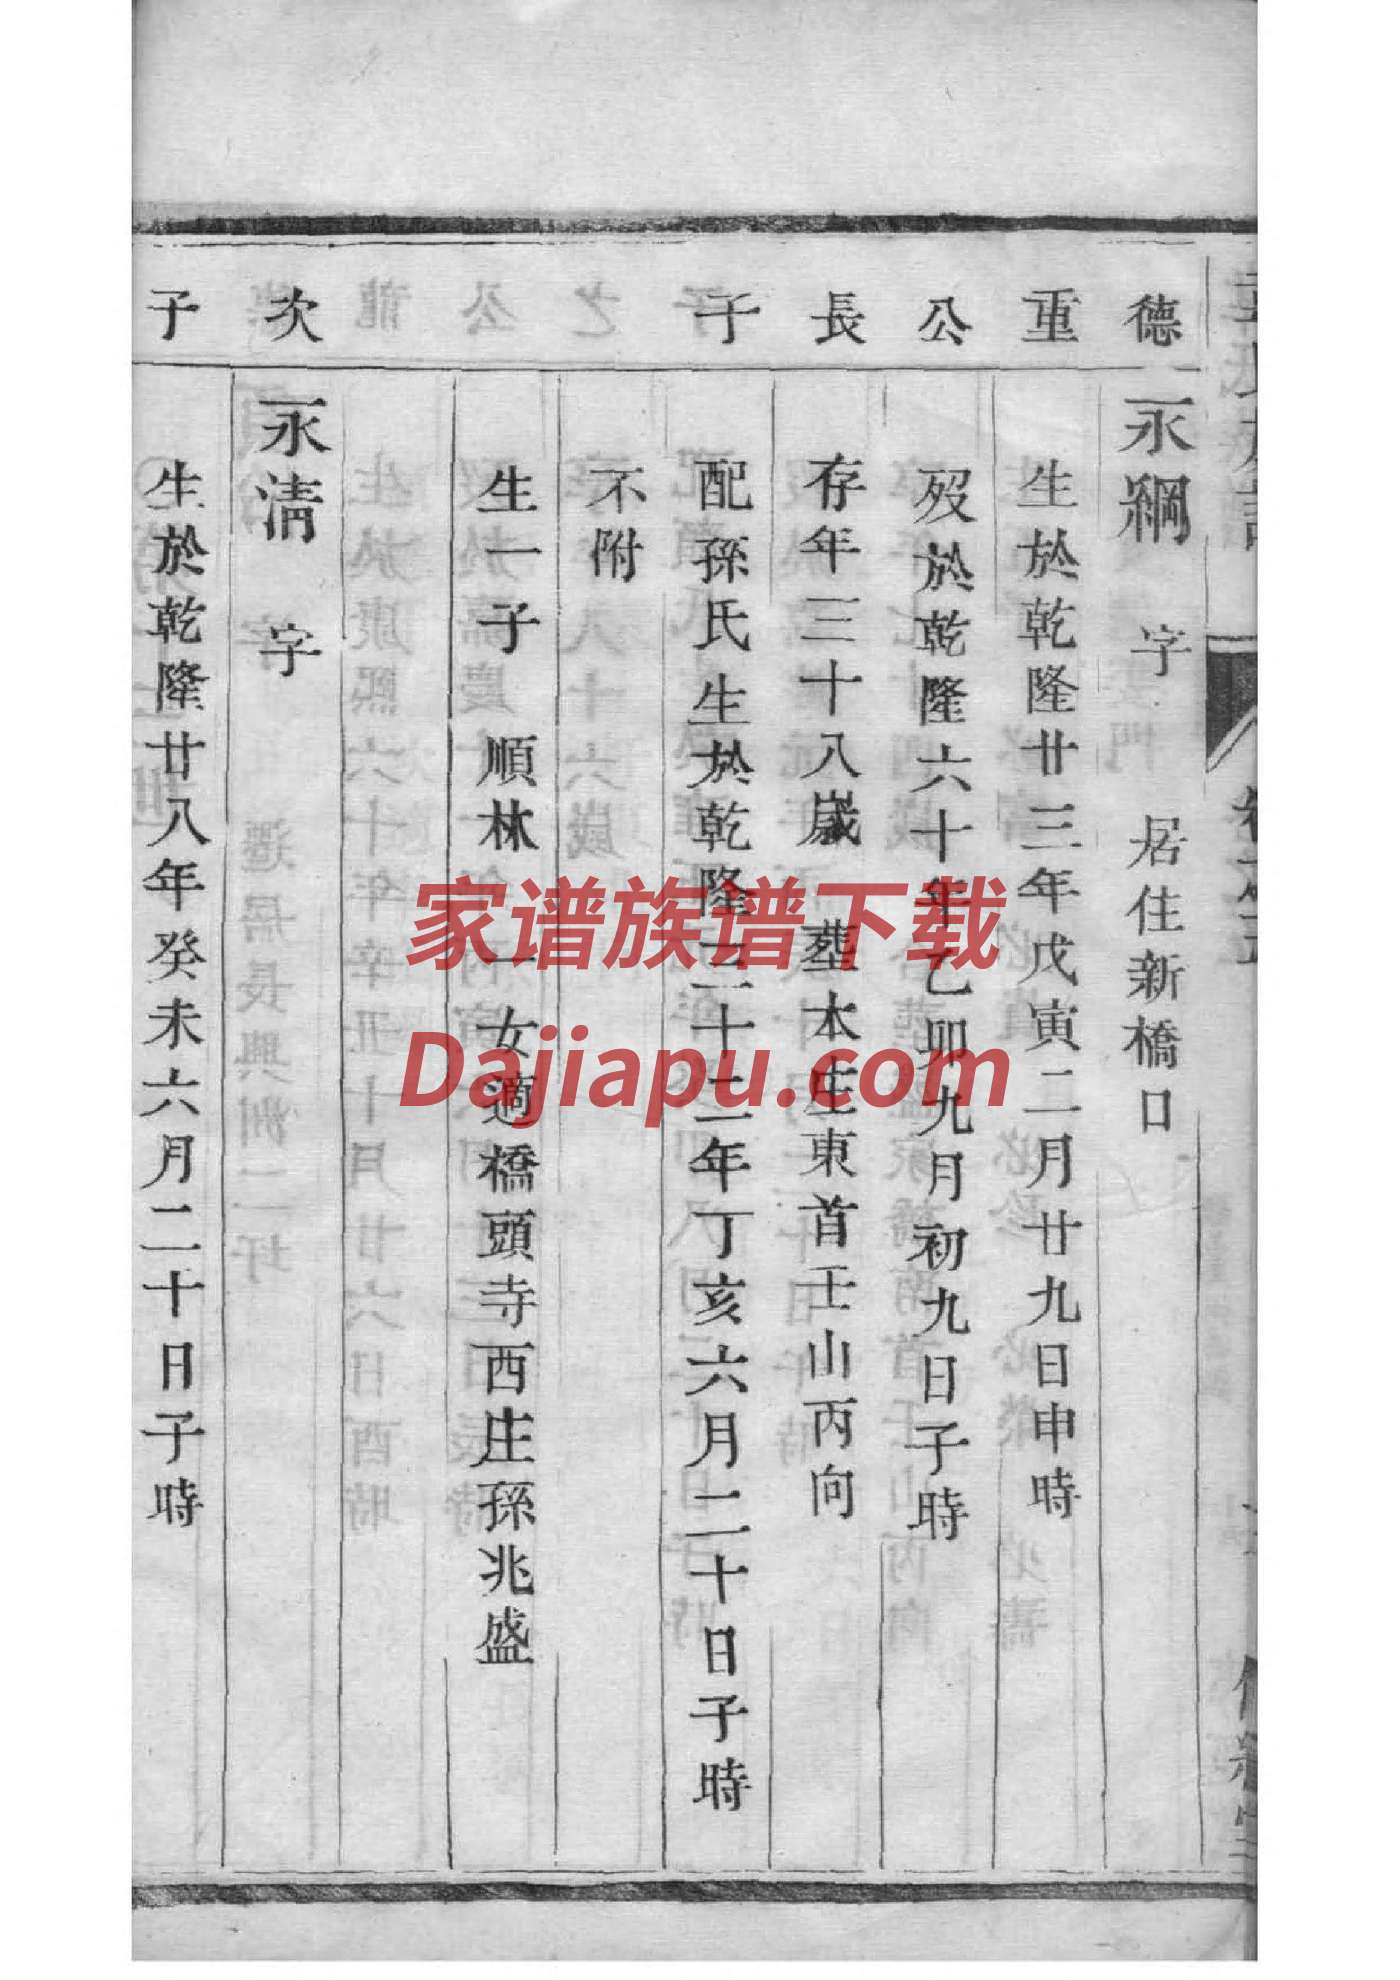 德重公長子
永綱 字 居住新橋口
生於乾隆廿三年戊寅二月廿九日申時
歿於乾隆六十年乙卯九月初九日子時
存年三十八歲 塟本庄東首壬山丙向
配孫氏生於乾隆三十二年丁亥六月二十日子時
不附
生一子 順林 一女適橋頭寺西庄孫兆盛
次子
永清 字
生於乾隆廿八年癸未六月二十日子時
家谱族谱下载
Dajiapu.com